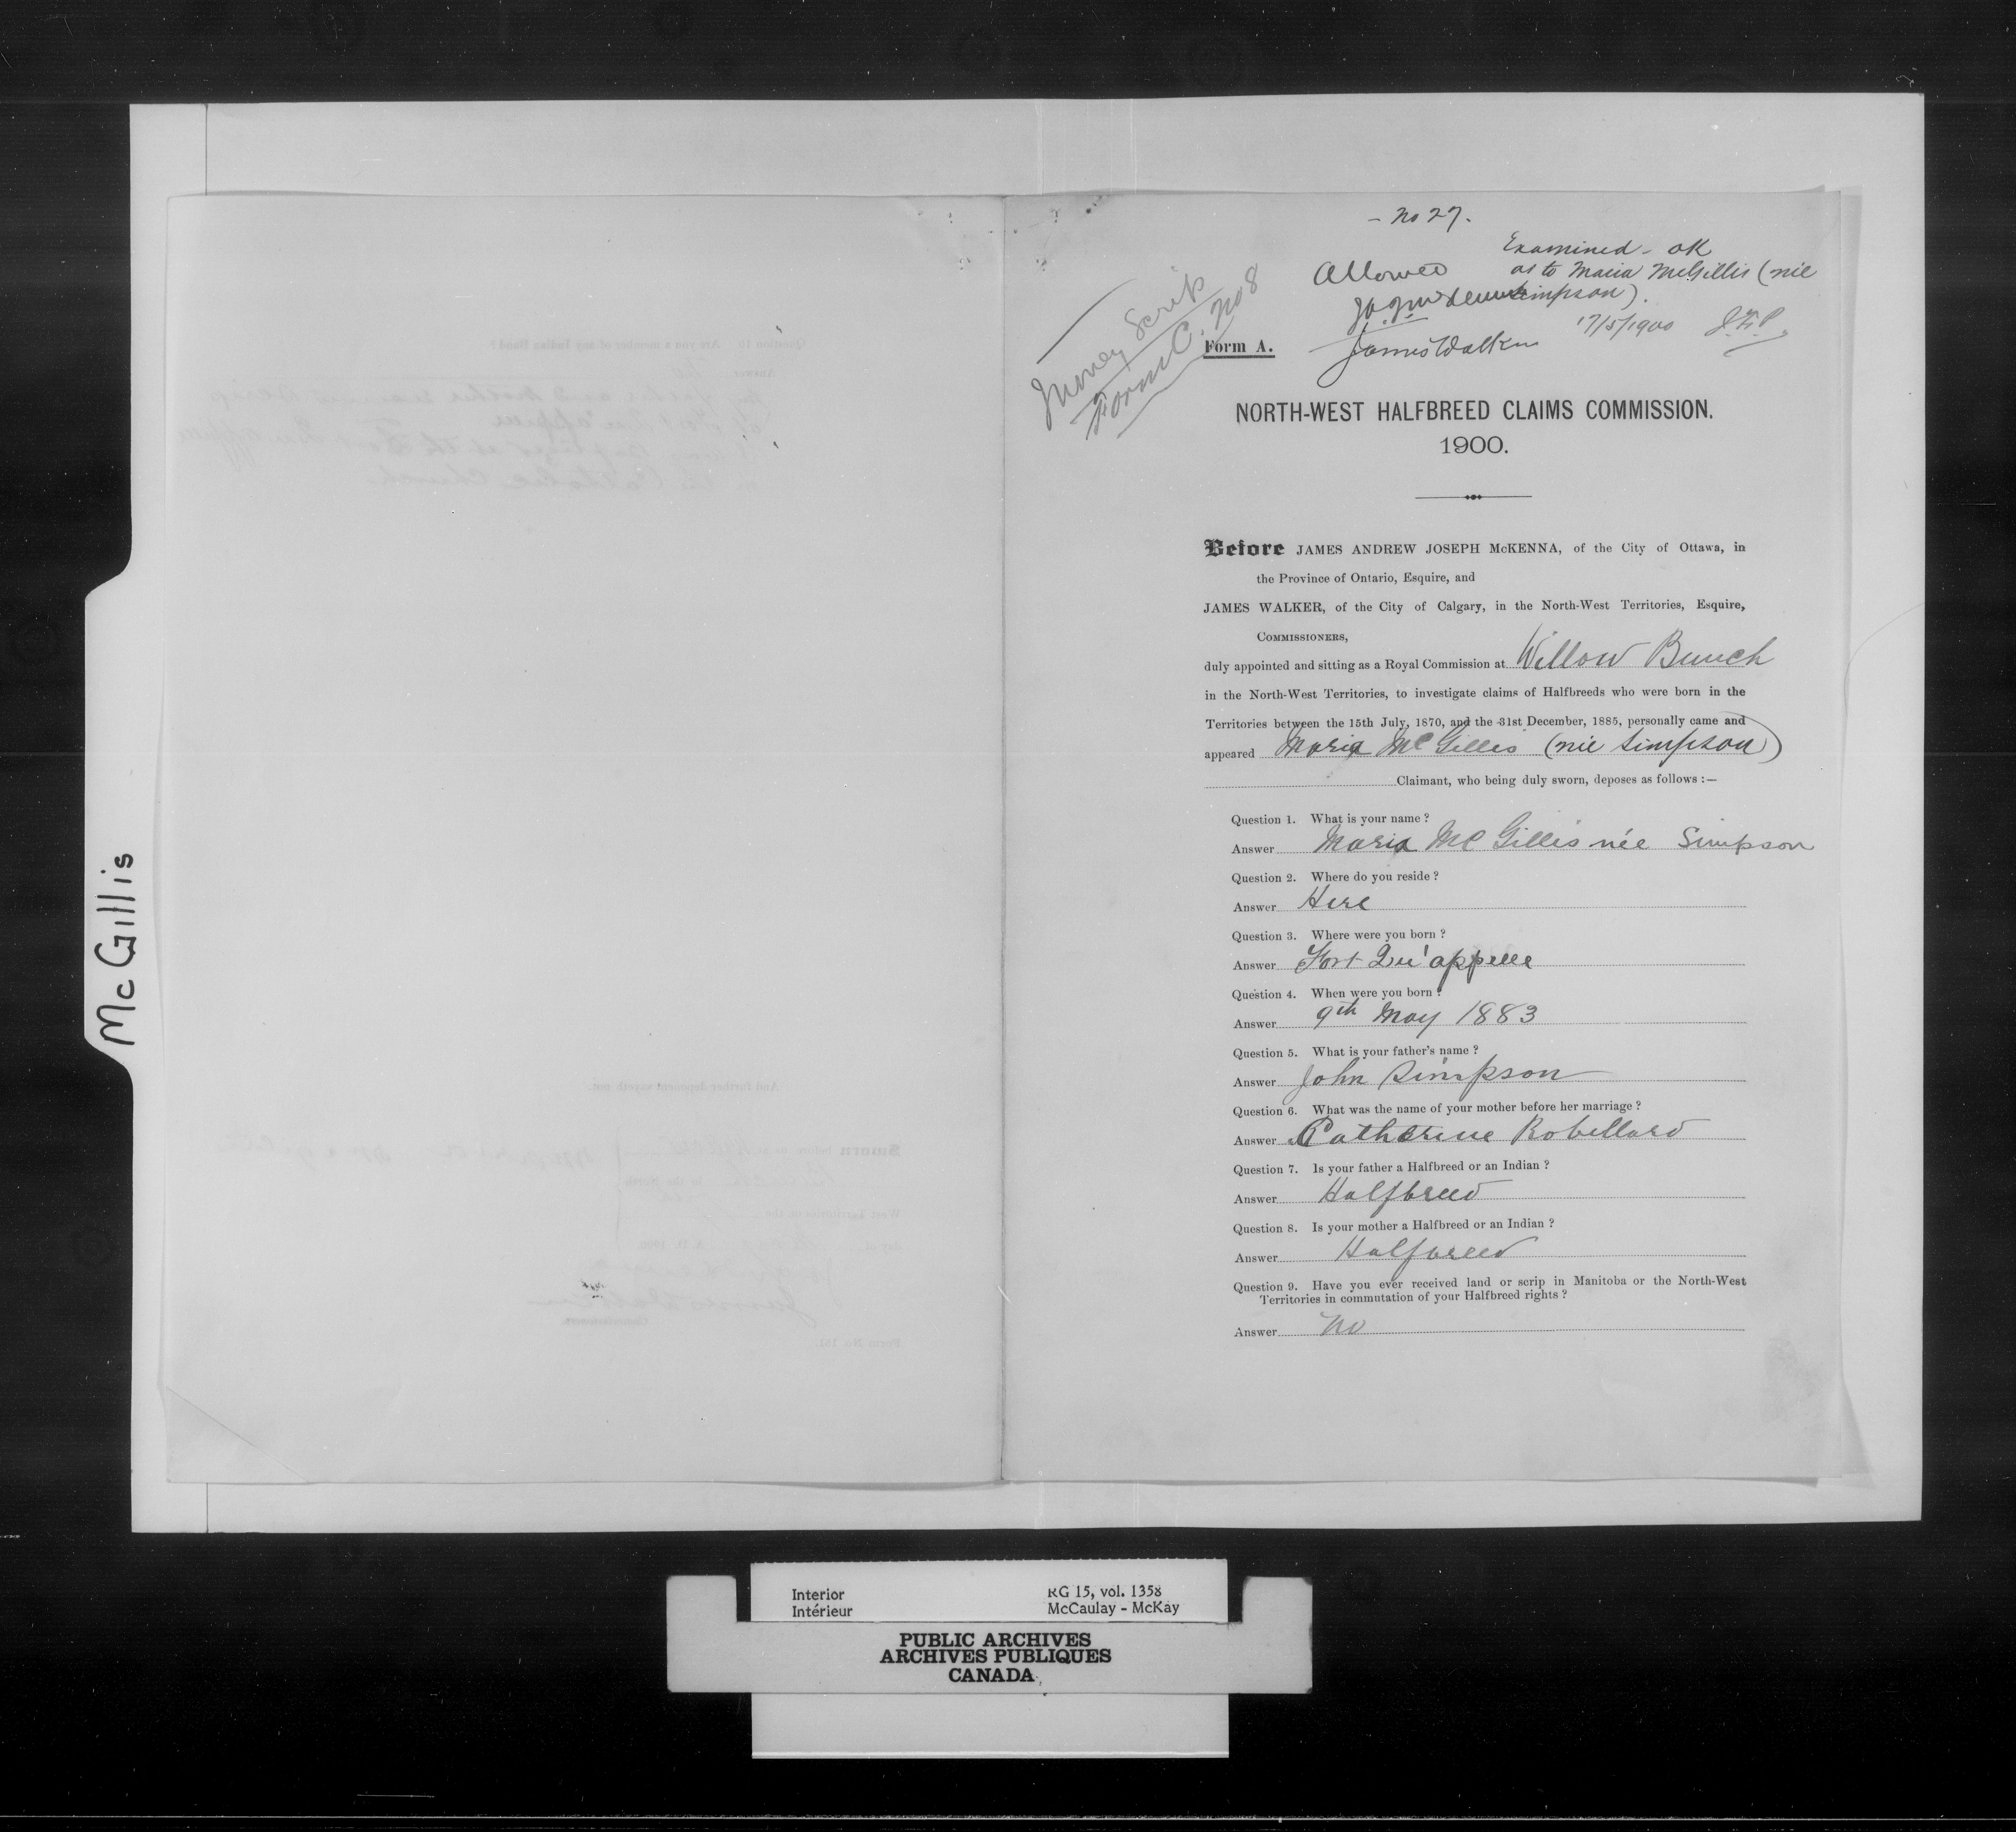 McGillis
- No 27.
Examined - OK
Allowed as to Maria McGillis (née
Simpson).
17/5/1900 J.F.P.
James Walker
Money Scrip
Form C. No 8
Form A.
NORTH-WEST HALFBREED CLAIMS COMMISSION.
1900.
Before JAMES ANDREW JOSEPH McKENNA, of the City of Ottawa, in
the Province of Ontario, Esquire, and
JAMES WALKER, of the City of Calgary, in the North-West Territories, Esquire,
COMMISSIONERS,
duly appointed and sitting as a Royal Commission at Willow Bunch
in the North-West Territories, to investigate claims of Halfbreeds who were born in the
Territories between the 15th July, 1870, and the 31st December, 1885, personally came and
appeared Maria McGillis (née Simpson)
Claimant, who being duly sworn, deposes as follows :—
Question 1. What is your name ?
Answer Maria McGillis née Simpson
Question 2. Where do you reside ?
Answer Here
Question 3. Where were you born ?
Answer Fort Qu'appelle
Question 4. When were you born ?
Answer 9th May 1883
Question 5. What is your father's name ?
Answer John Simpson
Question 6. What was the name of your mother before her marriage ?
Answer Catherine Robillard
Question 7. Is your father a Halfbreed or an Indian ?
Answer Halfbreed
Question 8. Is your mother a Halfbreed or an Indian ?
Answer Halfbreed
Question 9. Have you ever received land or scrip in Manitoba or the North-West
Territories in commutation of your Halfbreed rights ?
Answer No
Interior RG 15, vol. 1358
Intérieur McCaulay - McKay
PUBLIC ARCHIVES
ARCHIVES PUBLIQUES
CANADA